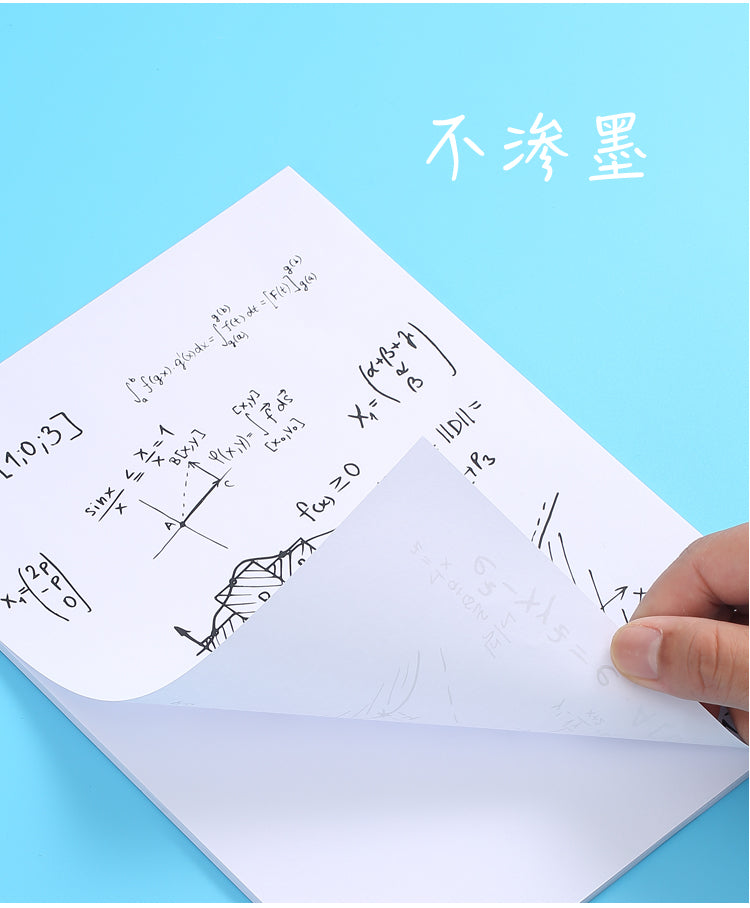 不渗墨
∫ₐᵇ f(gx)·g'(x)dx = ∫_{g(a)}^{g(b)} f(t)dt = [F(t)]_{g(a)}^{g(b)}
X₁=(α+β+γ
α
β)
[1;0;3]
sinx/x ≤ x/x = 1
B[x,y]
P(x,y)= ∫_{[x₀,y₀]}^{[x,y]} F⃗ ds⃗
A
C
f(x) ≥ 0
||D||=
+P₃
X₁=(2P
-P
0)
D
x